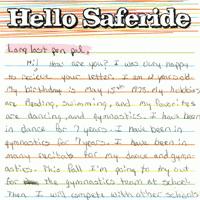 Hello Saferide
Long lost pen pal,
Hi! How are you? I was very happy
to recieve your letter. I am 12 years old
My birthday is May 5th 1978. My hobbies
are Reading, swimming, and my favorites
are dancing, and gymnastics. I have been
in dance for 7 years. I have been in
gymnastics for 7 years. I have been in
many recitals for my dance and gymna-
stics. This fall I'm going to try out
for the gymnastics team at school.
Then I will compete with other schools